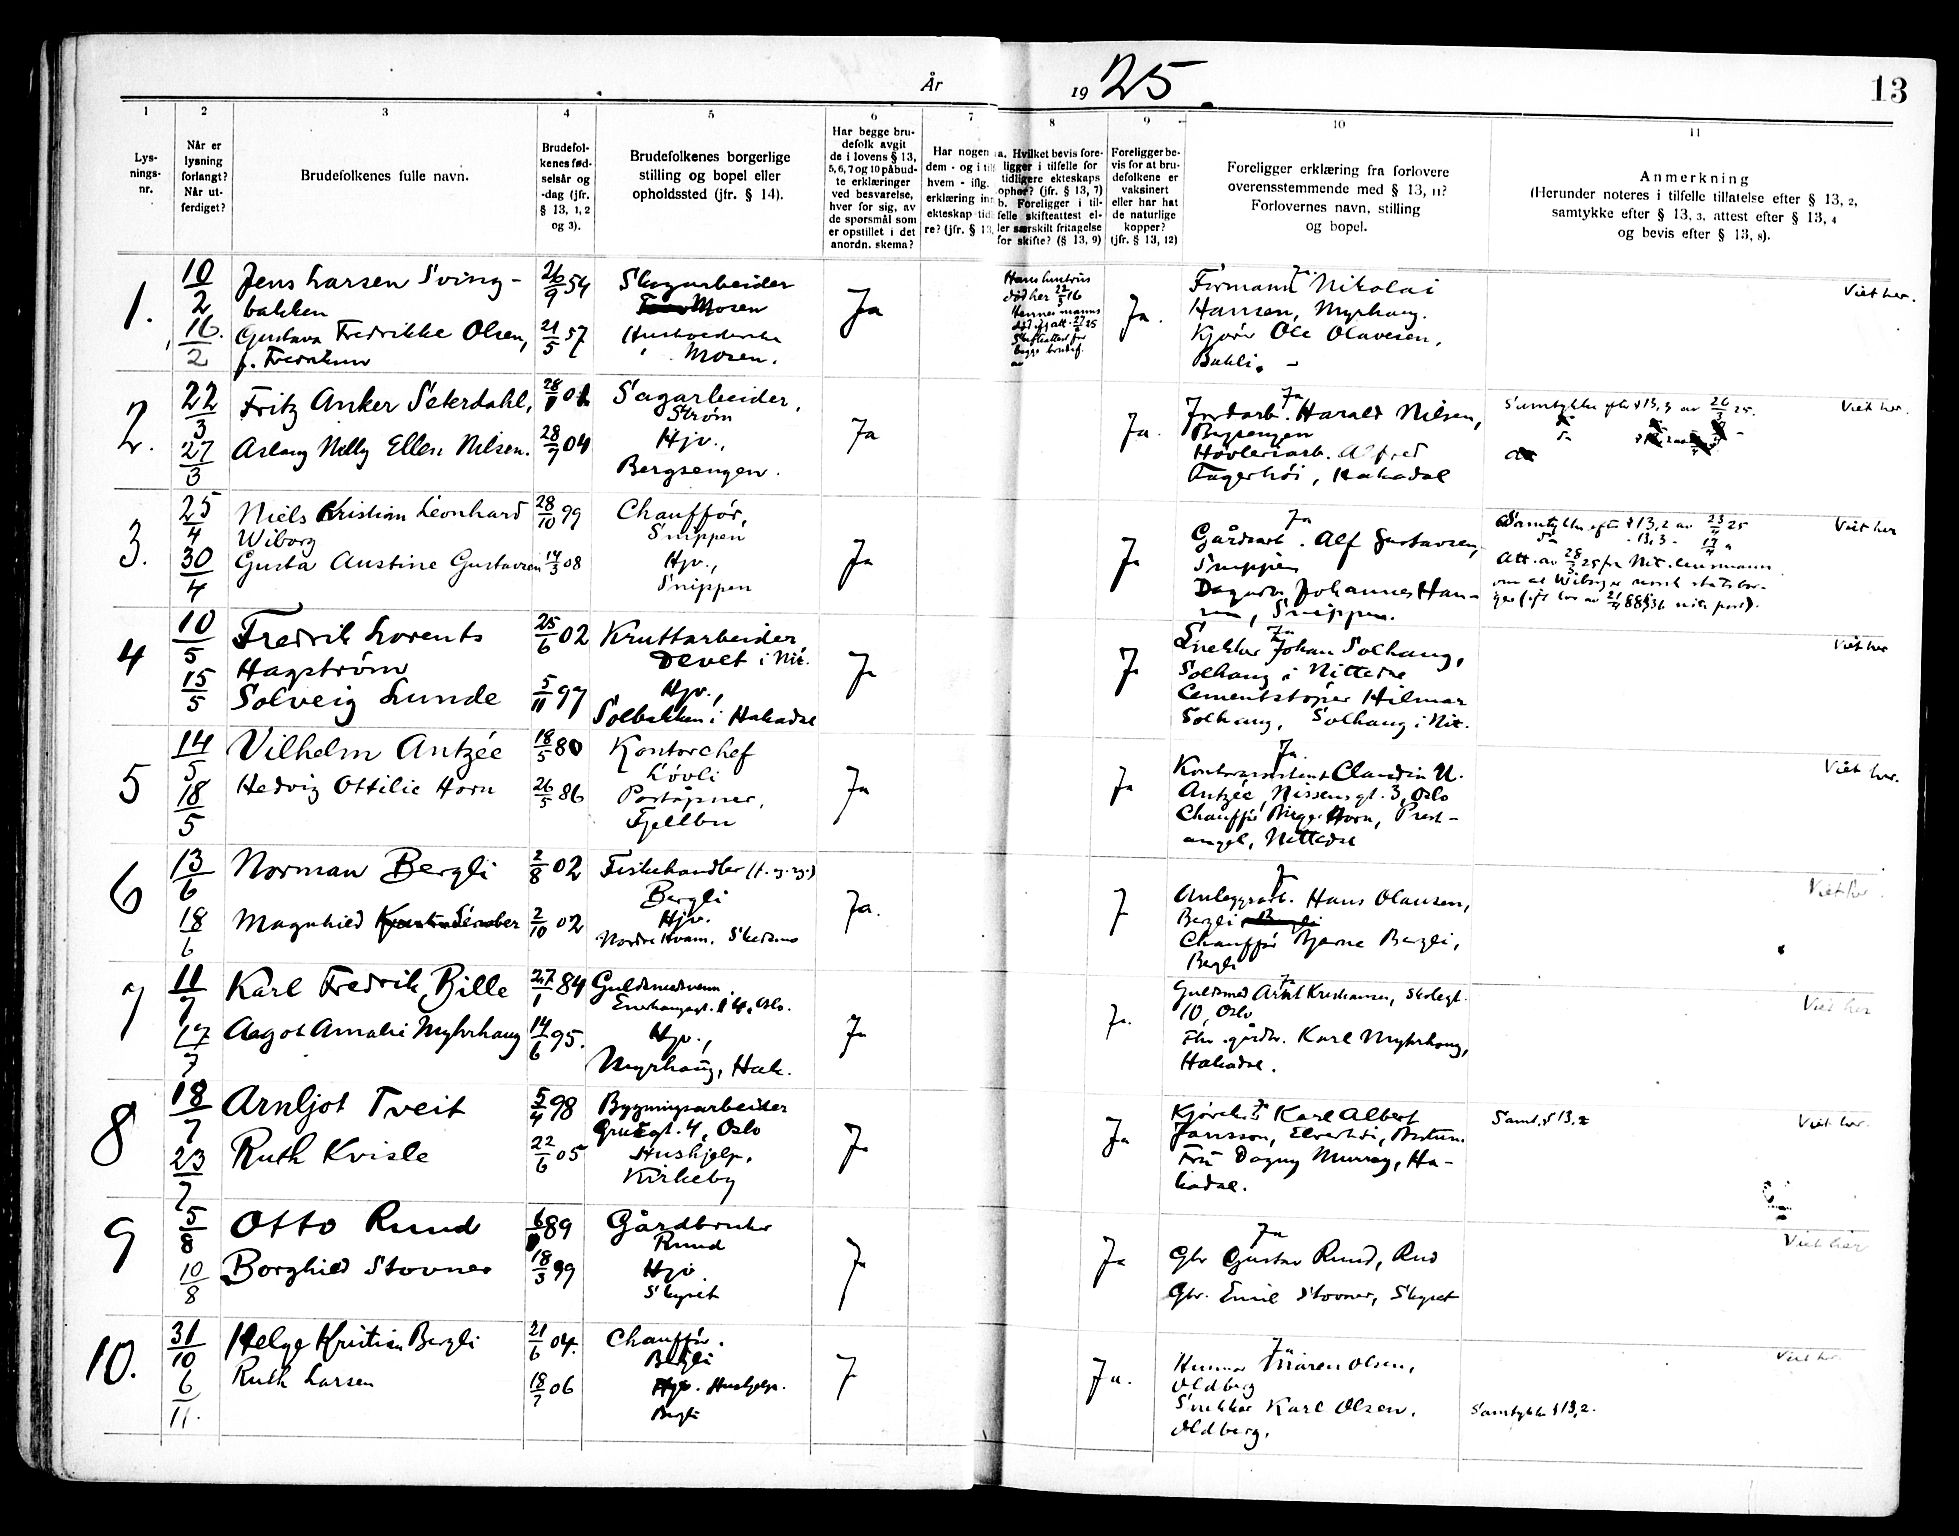 År 1925.
13
1 2 3 4 5 6 7 8 9 10 11
Lys-
nings-
nr.
Når er
lysning
forlangt?
Når ut-
ferdiget?
Brudefolkenes fulle navn.
Brudefol-
kenes fød-
selsår og
-dag (jfr.
§ 13, 1, 2
og 3).
Brudefolkenes borgerlige
stilling og bopel eller
opholdssted (jfr. § 14).
Har begge bru-
defolk avgit
de i lovens § 13,
5, 6, 7 og 10 påbud-
te erklæringer
ved besvarelse,
hver for sig, av
de spørsmål som
er opstillet i det
anordn. skema?
Har nogen
dem - og i til
hvem - iflg.
erklæring in
ekteskap tid
re? (jfr. § 13,
a. Hvilket bevis fore-
ligger i tilfelle for
tidligere ekteskaps
ophør? (jfr. § 13, 7)
b. Foreligger i til-
felle skifteattest el-
ler særskilt fritagelse
for skifte? (§ 13, 9)
Foreligger be-
vis for at bru-
defolkene er
vaksinert
eller har hat
de naturlige
kopper?
(jfr. § 13, 12)
Foreligger erklæring fra forlovere
overensstemmende med § 13, 11?
Forlovernes navn, stilling
og bopel.
Anmerkning
(Herunder noteres i tilfelle tillatelse efter § 13, 2,
samtykke efter § 13, 3, attest efter § 13, 4
og bevis efter § 13, 8).
1.
10/2
16/2
Jens Larsen Sving-
bakken
Gustava Fredrikke Olsen,
f. Fredriksen
26/9 54
21/5 57
Skogarbeider
Mosen
Mosen.
Ja
Hans hustrus
død her 22/5 16
Hennes manns
Ja.
Ja
Formann Nikolai
Hansen, Myrhaug.
Kjører Ole Olavesen,
Bakli.
Viet her.
2.
22/3
27/3
Fritz Anker Seterdahl,
Aslaug Nelly Ellen Nilsen.
28/7 04
Sagarbeider,
Strøm
Hjv.,
Bergsengen.
Ja
Ja.
Ja
Jordarb. Harald Nilsen,
Bergsengen
Høvleriarb. Alfred
Fagerhøi, Hakadal
Samtykke efter § 13, 3 av 26/3 25.
Viet her.
3.
25/4
30/4
Niels Kristian Leonhard
Wiborg
Gusta Austine Gustavsen
28/10 99
14/3 08
Chauffør,
Snippen
Hjv.,
Snippen
Ja
Ja
Ja
Gårdsarb. Alf Gustavsen,
Snippen
Johannes Han-
sen, Snippen.
Samtykke efter § 13, 2 av 23/4 25
13,3 17/4 "
Att. av 28/3 25 fra Nit. lensmann
om at Wiborg er norsk statsbor-
Viet her
4
10/5
15/5
Fredrik Lorents
Hagstrøm
Solveig Lunde
25/6 02
5/11 97
Kruttarbeider
Devet i Nit.
Hjv.,
Solbakken i Hakadal
Ja
Ja
Ja
Snekker Johan Solhaug,
Solhaug i Nittedal
Cementstøper Hilmar
Solhaug, Solhaug i Nit.
Viet her
5
14/5
18/5
Vilhelm Antzée
Hedvig Ottilie Horn
18/5 80
26/5 86
Kontorchef
Løvli
Poståpner,
Fjellbu
Ja
Ja
Ja.
Kontorassistent Claudia U.
Antzée, Nissens gt. 3, Oslo
Chauffør Birger Horn, Prest-
angel, Nittedal
Viet her.
6
13/6
18/6
Norman Bergli
Magnhild
2/8 02
2/10 02
Fiskehandler
Bergli
Hjv.
Nordre Kvam, Skedsmo
Ja.
J
J
Anleggsarb. Hans Olausen,
Bergli,
Chauffør Bjarne Bergli,
Bergli
Viet her.
7
11/7
17/7
Karl Fredrik Bille
Aagot Amalie Myhrhaug
27/1 84
14/6 95.
Guldsmedsvenn
Enerhauggt. 14, Oslo.
Hjv.,
Myrhaug, Hak.
Ja
Ja.
Ja
Guldsmed Arnt Kristiansen, Skolegt.
10, Oslo
Karl Myhrhaug,
Hakadal.
Viet her
8
18/7
23/7
Arnljot Tveit
Ruth Kvisle
5/4 98
22/6 05
Bygningsarbeider
gt. 4, Oslo
Hushjelp.
Kirkeby
Ja
Ja
Karl Albert
Jansson, Elverhøi,
Fru Dagny Murray, Ha-
kadal.
Samt. § 13, 2
Viet her.
9
5/8
10/8
Otto Ruud
Borghild Stovner
89
18/3 99
Gårdbruker
Ruud
Hjv.
Skyset
J
Ja
Ja
Gbr Gustav Ruud, Rud
Gbr. Emil Stovner, Skyset
Viet her
10.
31/10
6/11.
Helge Kristian Bergli
Ruth Larsen
21/6 04.
18/7 06
Chauffør.
Bergli
Hushjelp.
Bergli
J
Ja.
J
Maren Olsen,
Oldberg
Snekker Karl Olsen,
Oldberg.
Samtykke § 13, 2.
Viet her.